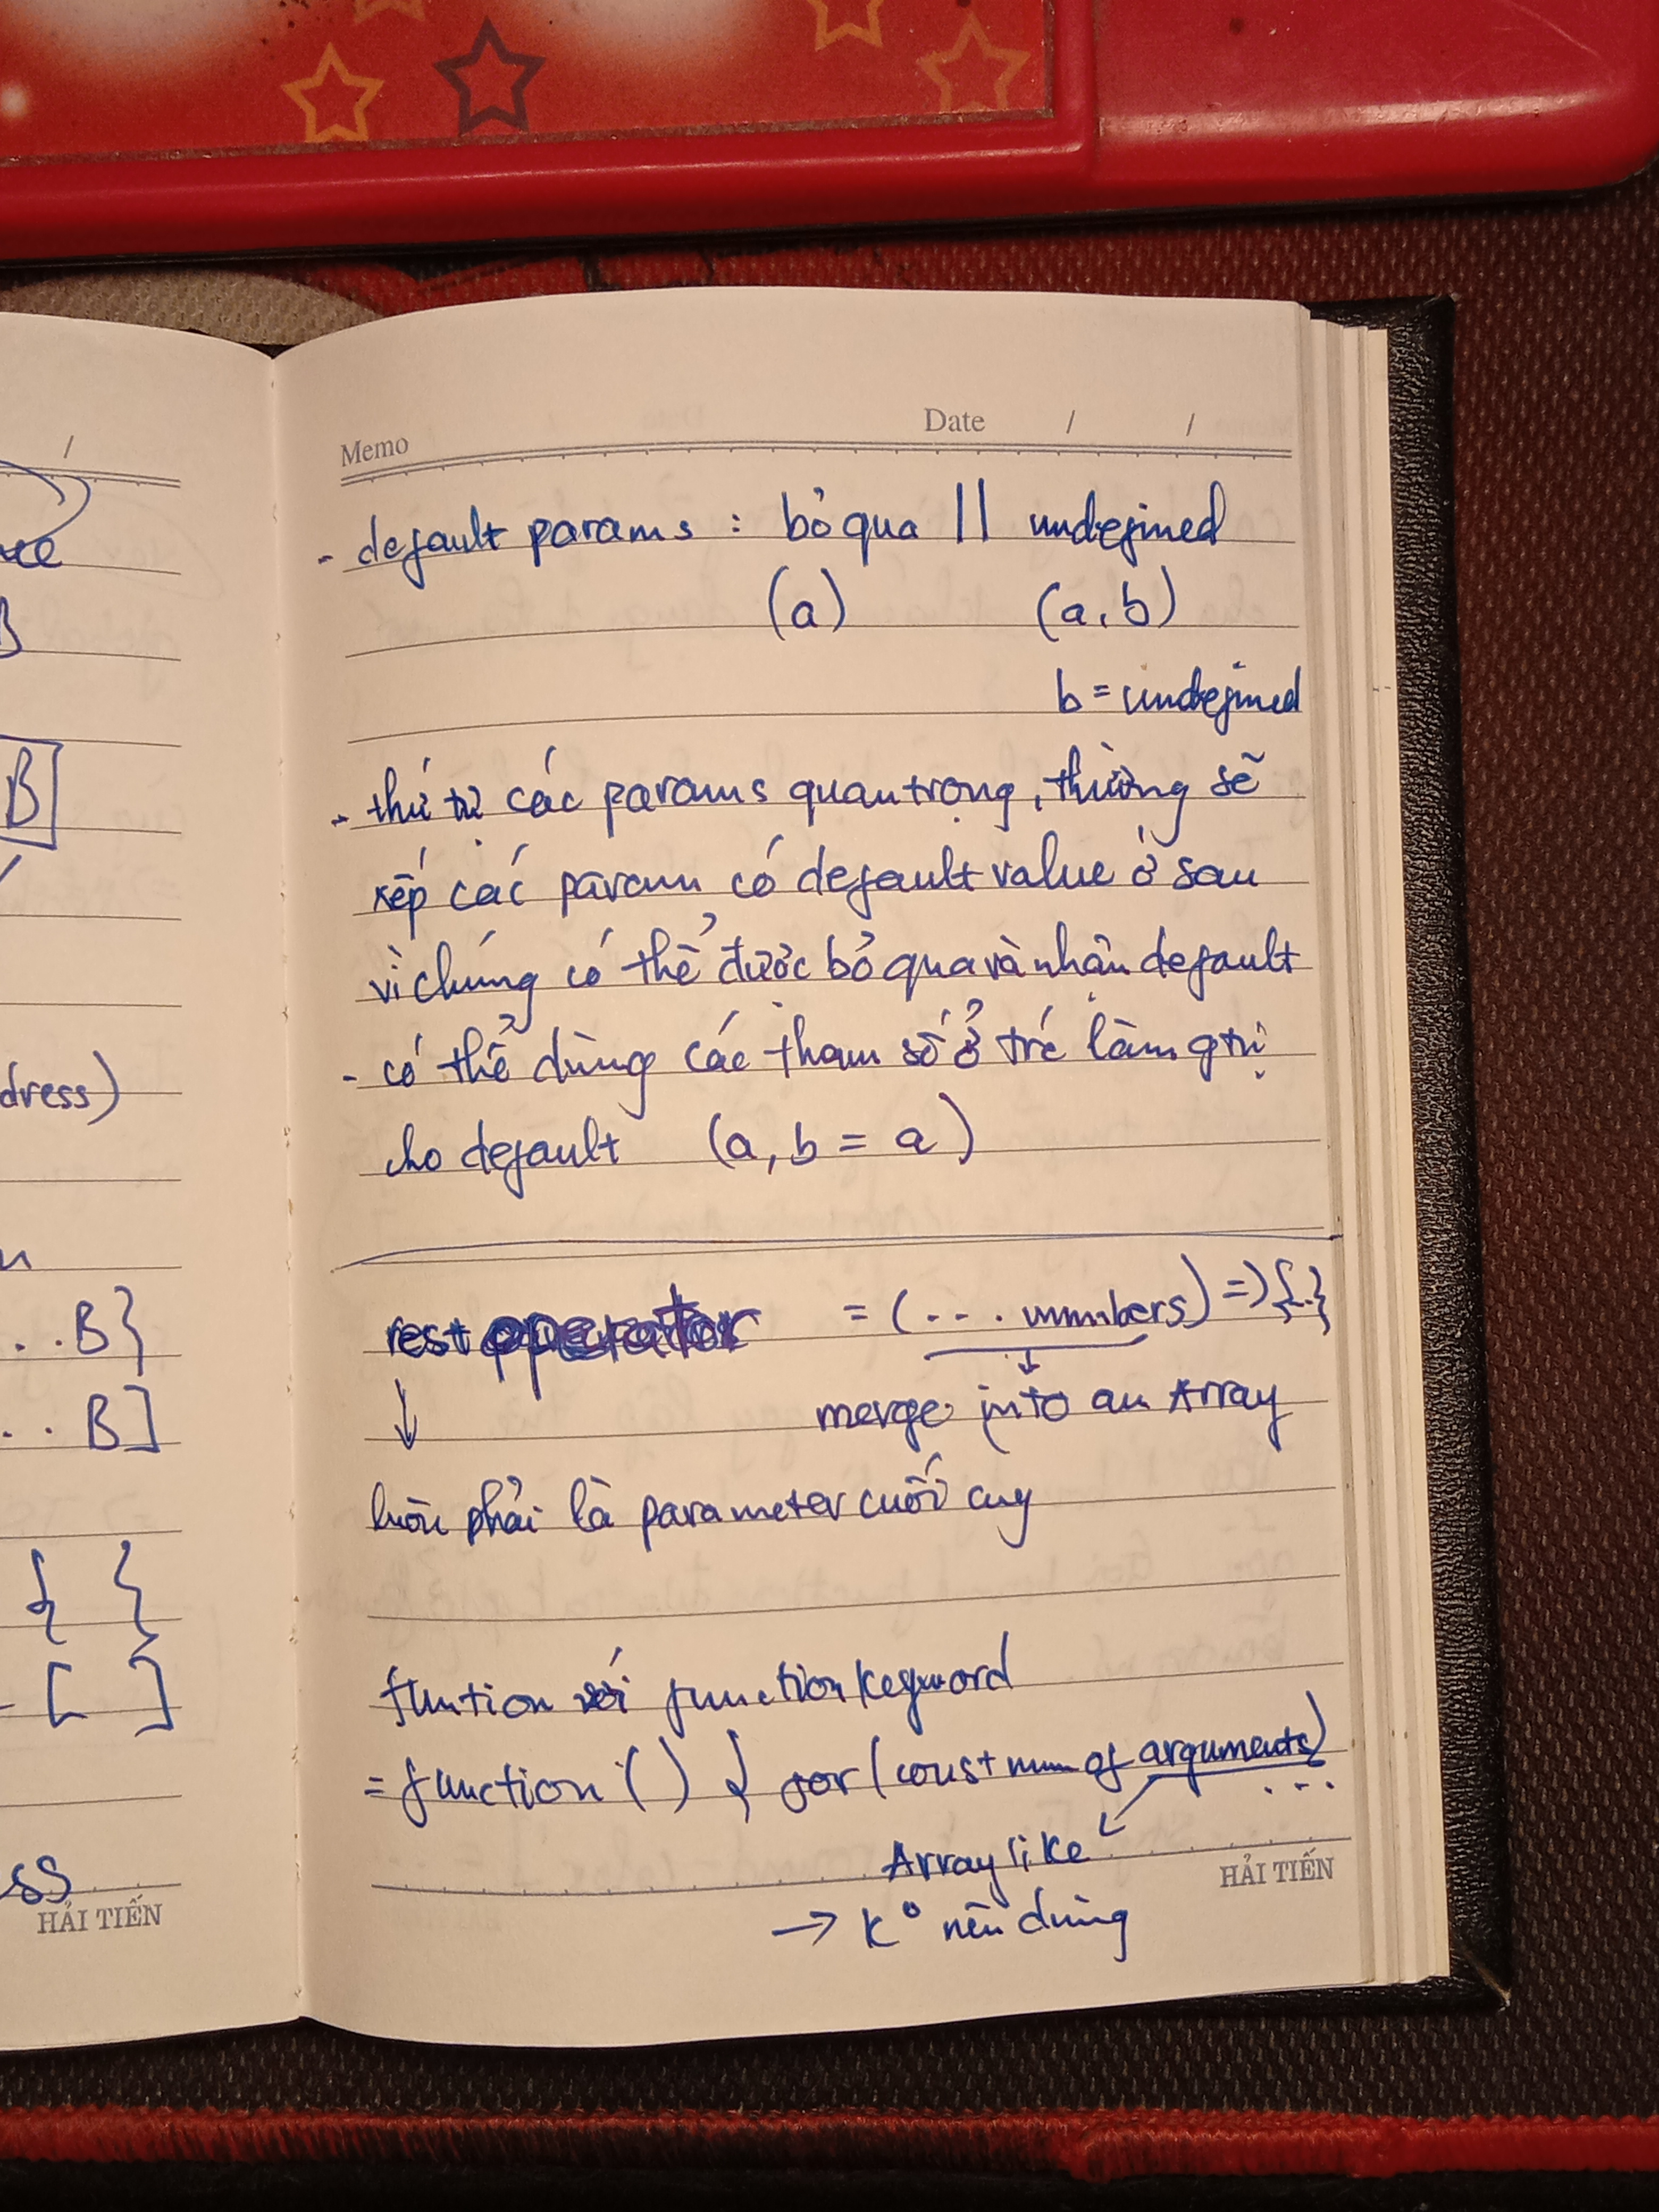 /
B
B
dress)
..B}
..B]
{ }
[ ]
ss
HẢI TIẾN
Memo
Date / /
- default params : bỏ qua || undefined
(a) (a, b)
b = undefined
- thứ tự các params quan trọng, thường sẽ
xếp các param có default value ở sau
vì chúng có thể được bỏ qua và nhận default
- có thể dùng các tham số ở trc làm gtrị
cho default (a, b = a)
rest operator = (... numbers) => {..}
↓ merge into an Array
luôn phải là parameter cuối cùg
funtion với function keyword
= function () { for (const num of arguments)
...
Array like
HẢI TIẾN
→ K° nên dùng